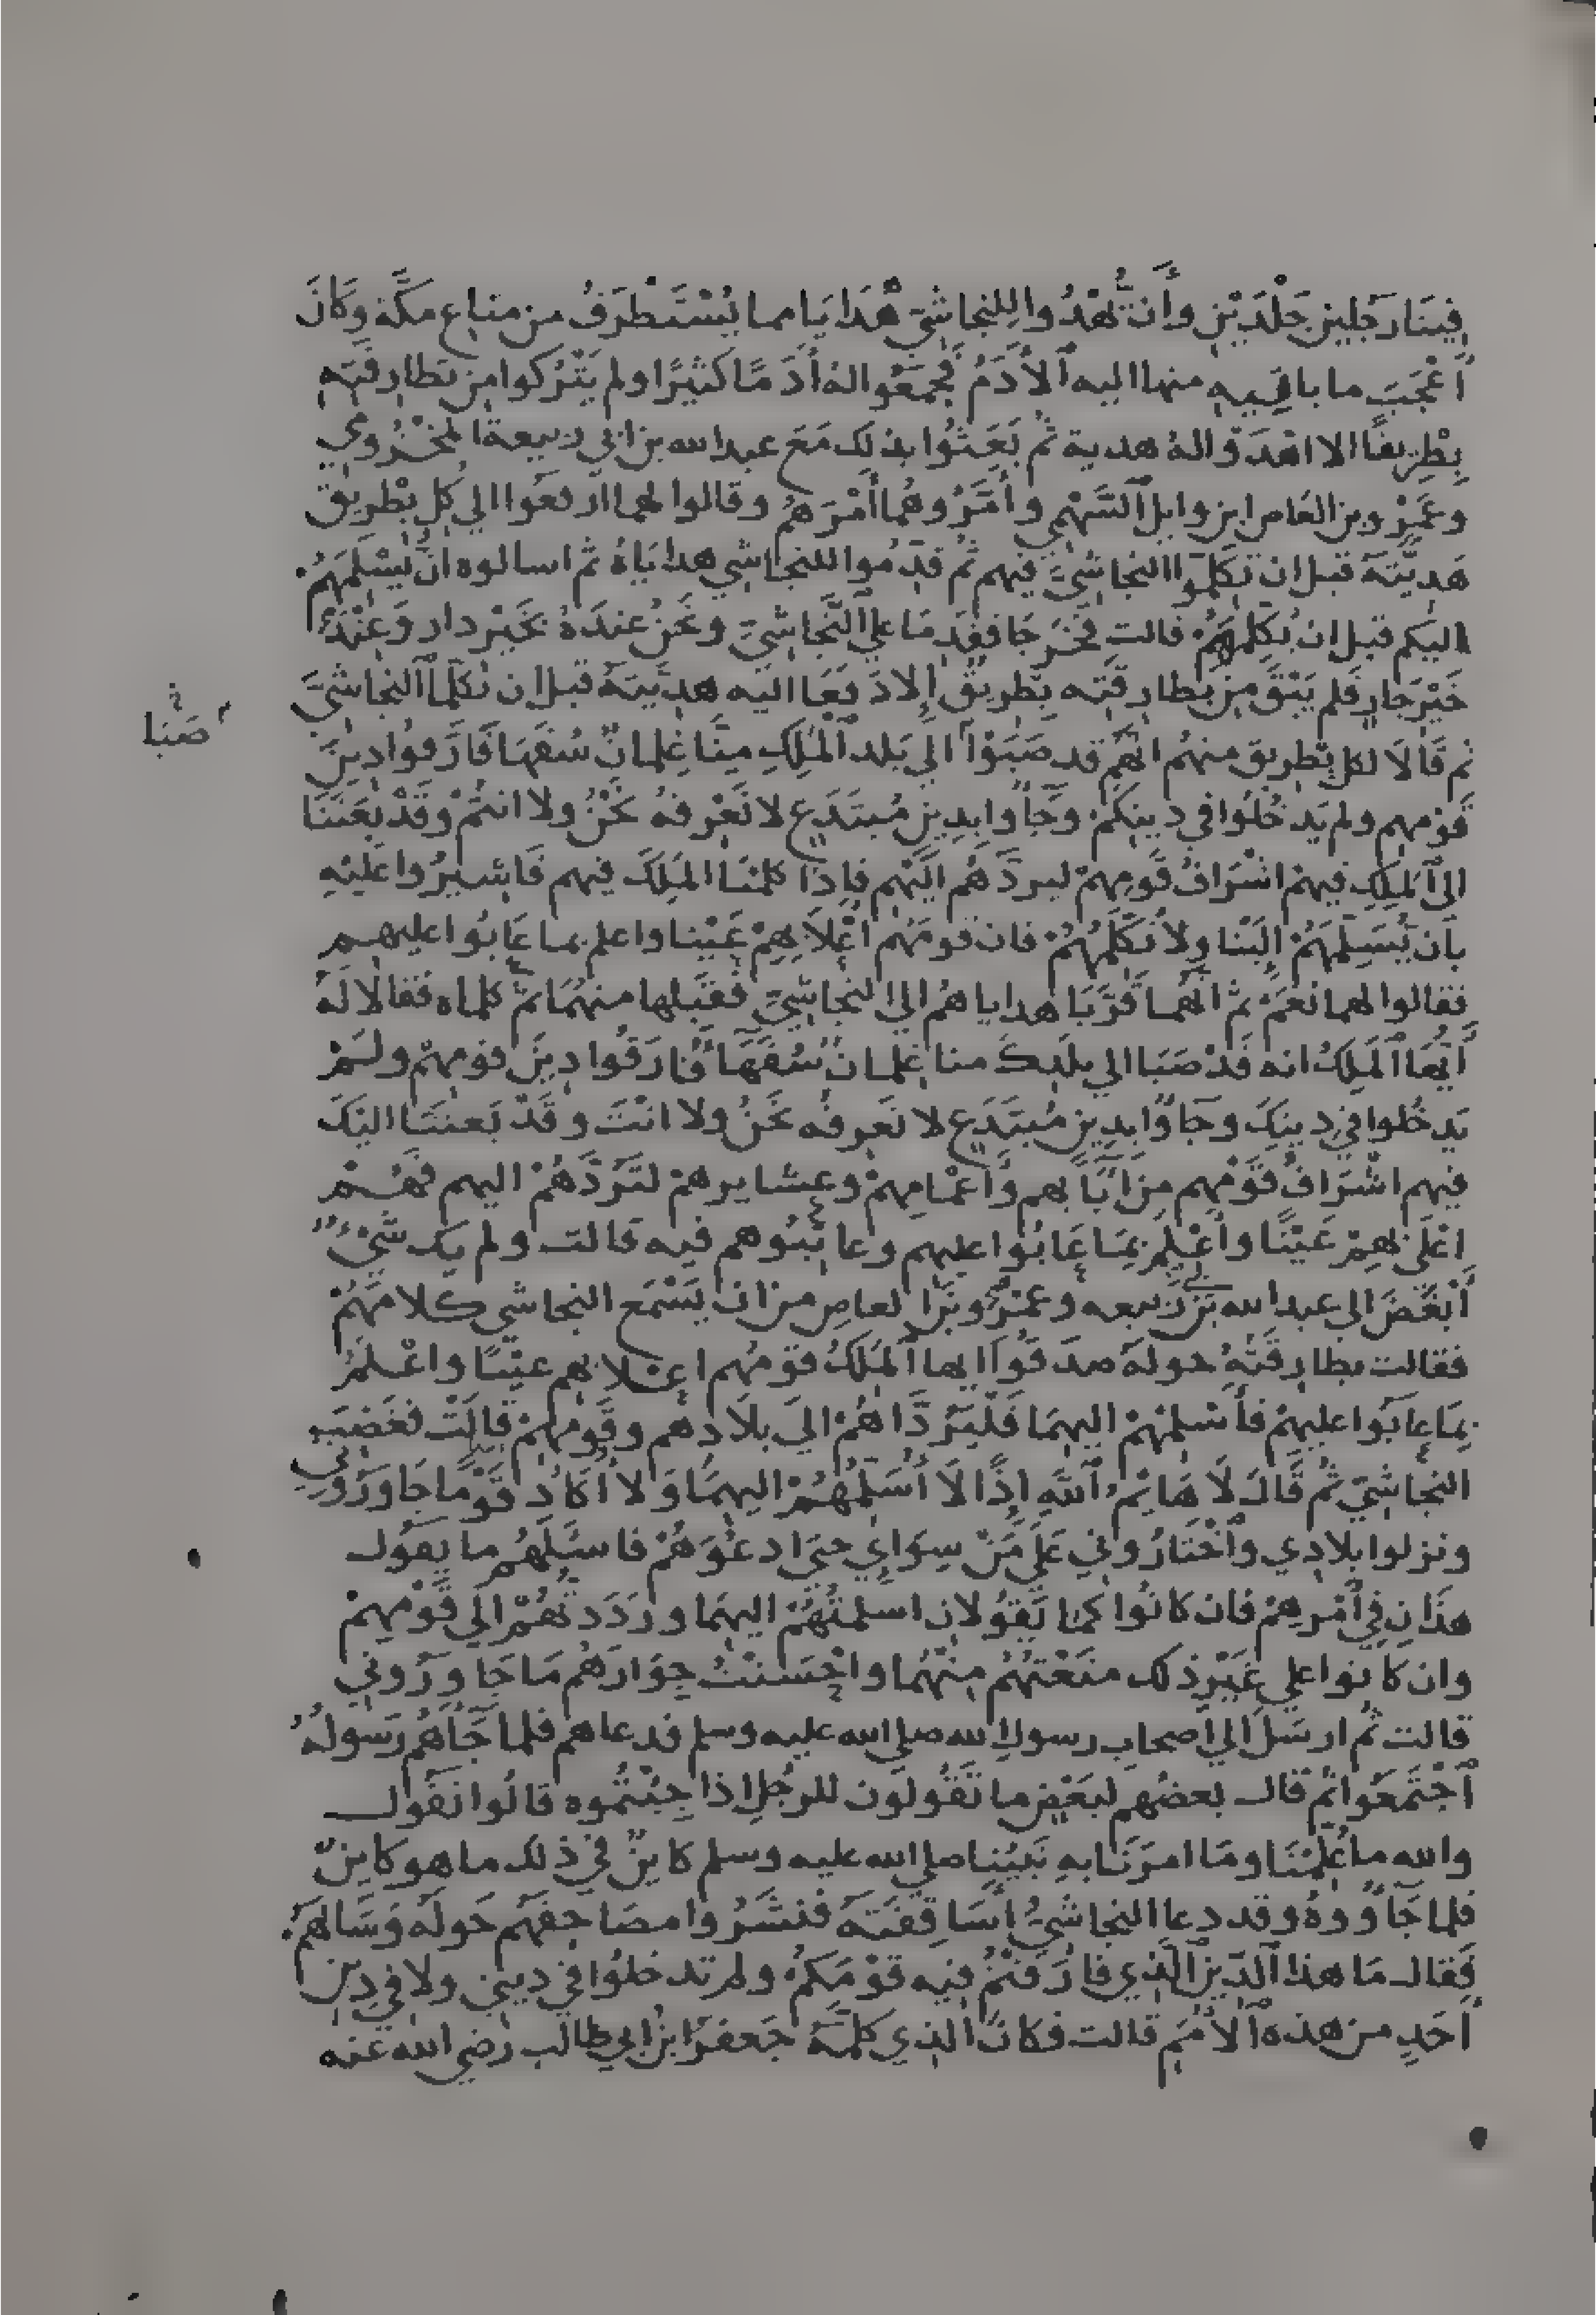 فِينَا رَجُلين جَلْدَيْنِ وأَن يُهْدُوا لِلنجاشيّ هَدَايَا مما يُسْتَطْرَفُ من متاع مكَّة وَكَانَ
أَعْجَبَ ما ياتِيهِ منها اليه ٱلأَدَمُ فجمَعُوا لهُ أَدَمًا كثيرًا ولم يَتْرُكوا مِن بَطارِقَتِهِ
بِطْرِيقًا الا اهْدَوْا لهُ هدية ثم بَعَثُوا بذلك مَعَ عبد الله بن ابي ربيعة المخْزُومي
وعَمْرو بن العَاص ابن وايل ٱلسَّهْمِي وأَمَرُوهُما أَمْرَهُم وقالوا لهما ادفعَوا الي كُلِّ بِطْرِيق
هَدِيَّتَه قبل ان تكلِّموا النجاشيَّ فيهم ثُم قدِّمُوا للنجاشي هداياهُ ثم اسالوه ان يُسْلِمَهُمْ
اليكم قبل ان يُكلِمَهُمْ قالت فخَرَجَا فقَدِمَا علي النَّجاشيّ ونَحْنُ عندَهُ بخَيْر دار وَعِنْدَ
خَيْرِ جارٍ فلم يَبْقَ مِن بَطارِقَتِه بِطْرِيقٌ إِلا دَفعَا اليه هديَّتَهُ قبل ان تكلِّما ٱلنجاشيَّ
ثم قَالَا لكل بِطْريق منهُم انهُم قد صَبَوْا الي بَلد ٱلْمَلِكِ مِنَّا غِلمانٌ سُفَهَا فَارَقُوا دِينَ
قَوْمِهم ولم يَدخُلُوا في دينِكُم وجَآوا بِدِينٍ مُبتَدَعٍ لا نَعْرِفهُ نَحْنُ ولا انتُمْ وقَدْ بَعَثَنَا
الي ٱلمَلِكِ فيهمْ اشْرَافُ قَومِهِمْ ليردَّهُم اليْهِم فاِذَا كلمْنَا المَلِكَ فيهم فَاشيرُوا عَليْهِ
بأن يُسَلِّمَهُمْ إِلَيْنا ولا يُكَلِّمَهُمْ فان قومَهُم اعْلَا بِهِمْ عَيْنا واعلم بما عَابُوا عليهم
فقالوا لهما نعَمْ ثم انهُما قَرَّبَا هداياهُم الي النجاشيّ فقَبِلها منهُمَا ثم كلماه فقالا لَهُ
أَيُّهَا ٱلمَلِكُ انه قَدْ صَبَا الي بلَدِكَ منا غِلمانٌ سُفَهَا فَارَقُوا دِينَ قومِهمْ ولَمْ
يَدخُلوا في دينِكَ وجَاوُا بدِينٍ مُبتَدَع لا نَعرِفُه نَحْنُ ولا انْتَ وقَدْ بَعثنَا اليْكَ
فيهم اشْرَافُ قَوْمِهم مِن اٰبَايهم وأَعْمامِهِمْ وعشايرهمْ لتَرُدَّهُمْ اليهم فَهُمْ
اعْلَي بهِمْ عَيْنًا وأَعْلَمُ بِمَا عَابُوا عليهم وعاتَبُوهم فيه قالت ولم يك شَيْءٌ
أَبْغَضَ الي عبد الله بنِ ربيعه وعمْرِو بنِ العاصِ من ان يَسْمَع النجاشي كلامَهُمْ
فقالت بطارِقَتُهُ حولهُ صدَقُوا ايها ٱلمَلِكُ قومُهم اعلا بهم عيْنًا واعْلمُ
بِمَا عابَوا عليهِمْ فأَسْلِمْهُمْ اليهمَا فَلْيَرُدَّاهُمْ اليَ بلادِهم وقَومِهِمْ قالَتْ فغَضِبَ
النجاشيّ ثُم قَالَ لَا هَا يْمُ ٱللهِ اِذًا لَا أُسَلِّمُهُمْ اليهِمَا وَلا أُكَادُ قَوْمًا جَاوَرُونِي
ونزلوا بِلادِي وٱخْتَارُونِي عَلَي مَنْ سِوَايِ حتيَ ادعُوَهُمْ فاسئَلَهُم ما يقُول
هذَانِ في أَمْرِهِمْ فان كانُوا كما يَقُولان اسلمتُهُمْ اليهمَا وردَدتُهُمْ الي قَوْمِهِمْ
وان كانُوا علي غَيْرِ ذلك منَعْتُهُمْ مِنْهُما واحْسَنْتُ جِوَارَهُم مَا جَاوَرُونِي
قالت ثُم ارسَلَ الي أَصحابِ رسولِ الله صلي الله عليه وسلم فدعاهم فلما جَآهُم رَسولُهُ
ٱجْتَمَعُوا ثم قال بعضُهم لبَعْضٍ ما تَقُولُون للرجُلِ اذا جِئتُموه قالُوا نَقُول
والله ما عُلِّمْنَا ومَا امرَنَا بهِ نَبيُّنا صلي الله عليه وسلم كاينٌ في ذلك ما هو كاينٌ
فلما جَآوُوهُ وقد دعا النجاشيُّ أَسَاقِفَتَهُ فنشَرُوا مصَاحِفَهُم حَولَهُ وَسَالهُمْ
فَقال مَا هذا ٱلدّين ٱلَّذِي فَارَقتُمْ فيه قوْمَكُمْ ولم تدخلوُا في ديني ولا في دِينِ
أَحَدٍ من هذه ٱلأُمَمِ قالت فكان الذي كلمَهُ جَعفرُ ابنُ ابي طالب رضي الله عنه
صَبَا